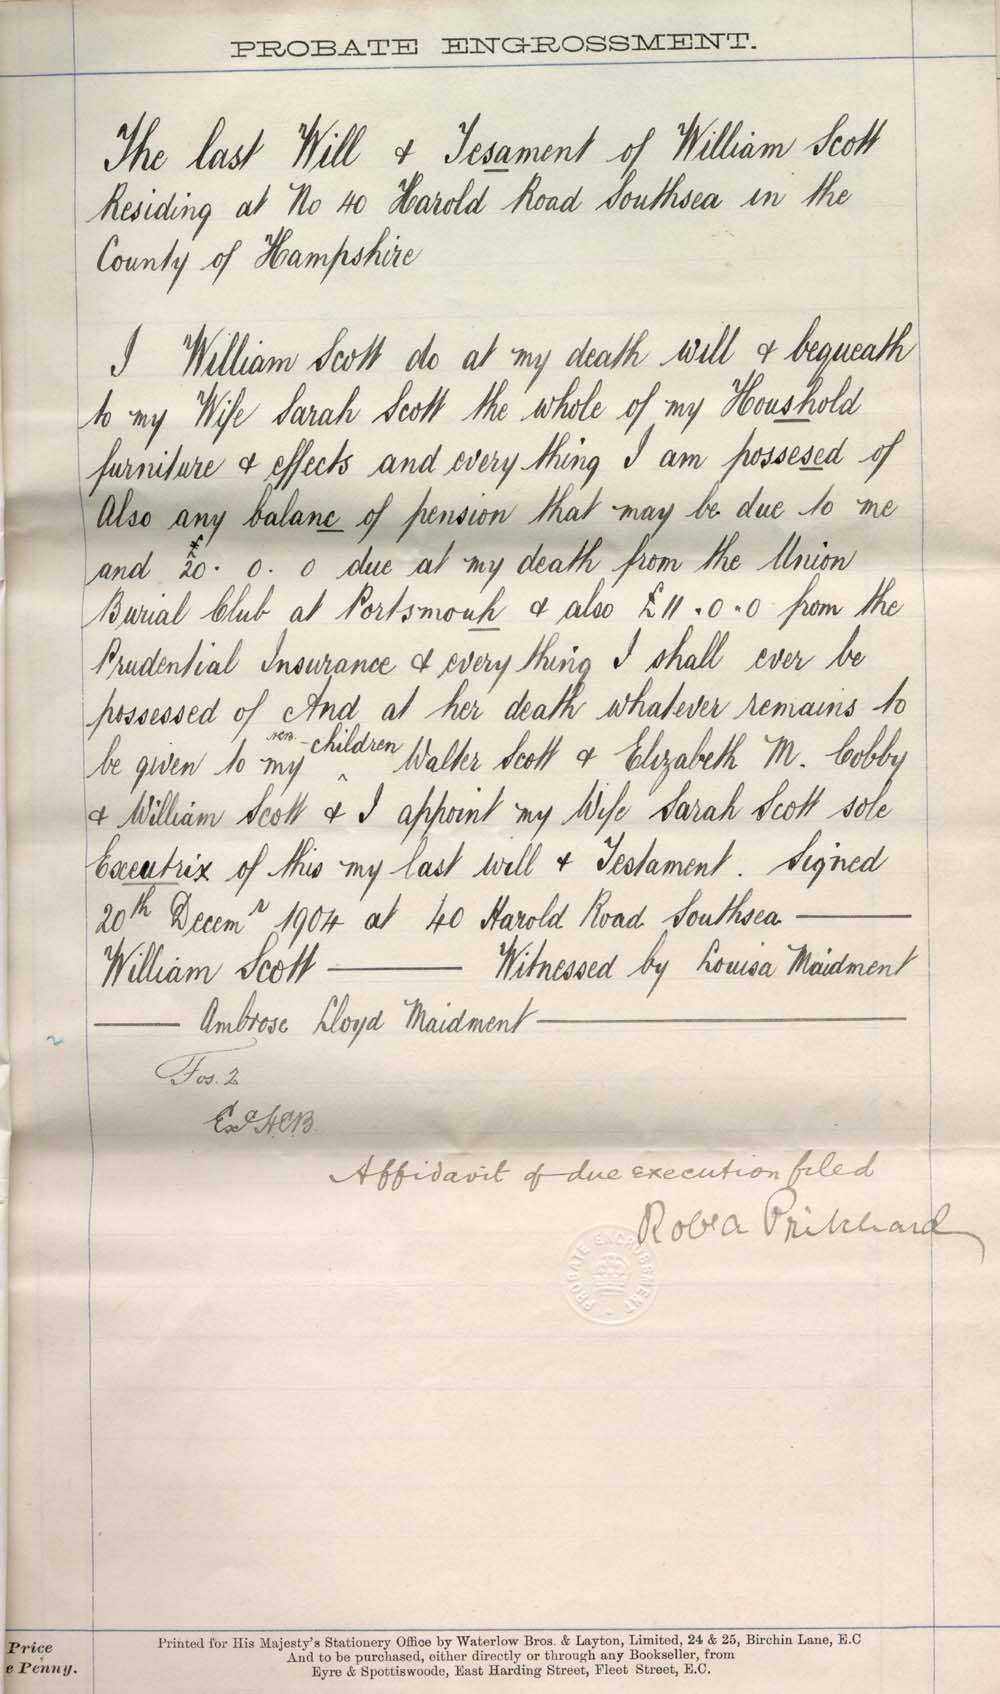 PROBATE ENGROSSMENT.
The last Will & Tesament of William Scott
Residing at No 40 Harold Road Southsea in the
County of Hampshire
I William Scott do at my death will & bequeath
to my Wife Sarah Scott the whole of my Houshold
furniture & effects and every thing I am possesed of
Also any balanc of pension that may be due to me
and £20. 0. 0 due at my death from the Union
Burial Club at Portsmouh & also £11.0.0 from the
Prudential Insurance & every thing I shall ever be
possessed of And at her death whatever remains to
be given to my children Walter Scott & Elizabeth M. Cobby
& William Scott & I appoint my Wife Sarah Scott sole
Exeeutrix of this my last will & Testament. Signed
20th Decemr 1904 at 40 Harold Road Southsea
William Scott Witnessed by Louisa Maidment
Ambrose Lloyd Maidment
2
Fos. 2
Exd H.C.B.
Affidavit of due execution filed
Robt A Pritchard
PROBATE ENGROSSMENT
Price
e Penny.
Printed for His Majesty's Stationery Office by Waterlow Bros. & Layton, Limited, 24 & 25, Birchin Lane, E.C
And to be purchased, either directly or through any Bookseller, from
Eyre & Spottiswoode, East Harding Street, Fleet Street, E.C.